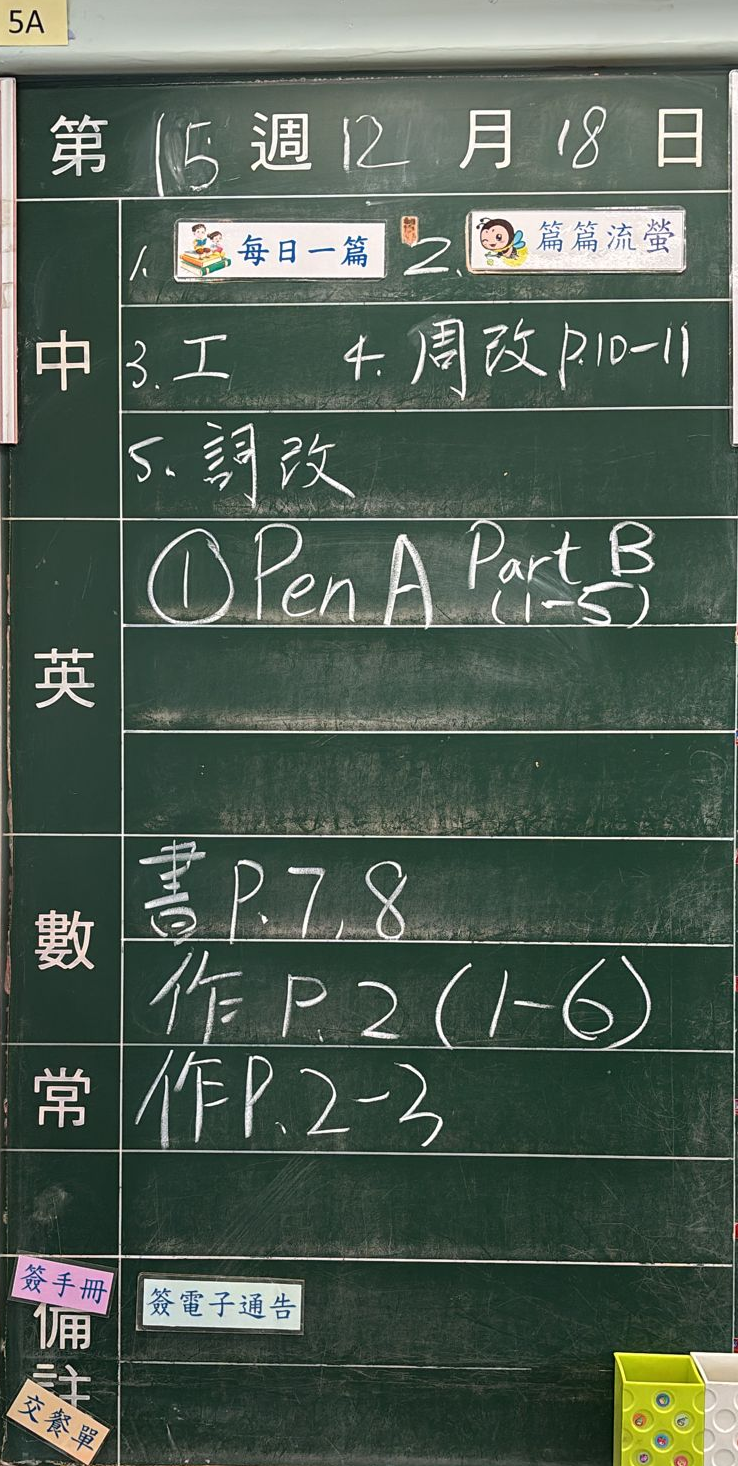 5A
第 15 週 12 月 18 日
中
1. 每日一篇 2. 篇篇流螢
3. 工 4. 周改 P.10-11
5. 詞改
英
① Pen A Part B
(1-5)
數
書 P.7, 8
作 P.2 (1-6)
常
作 P.2-3
簽手冊
簽電子通告
備註
交餐單